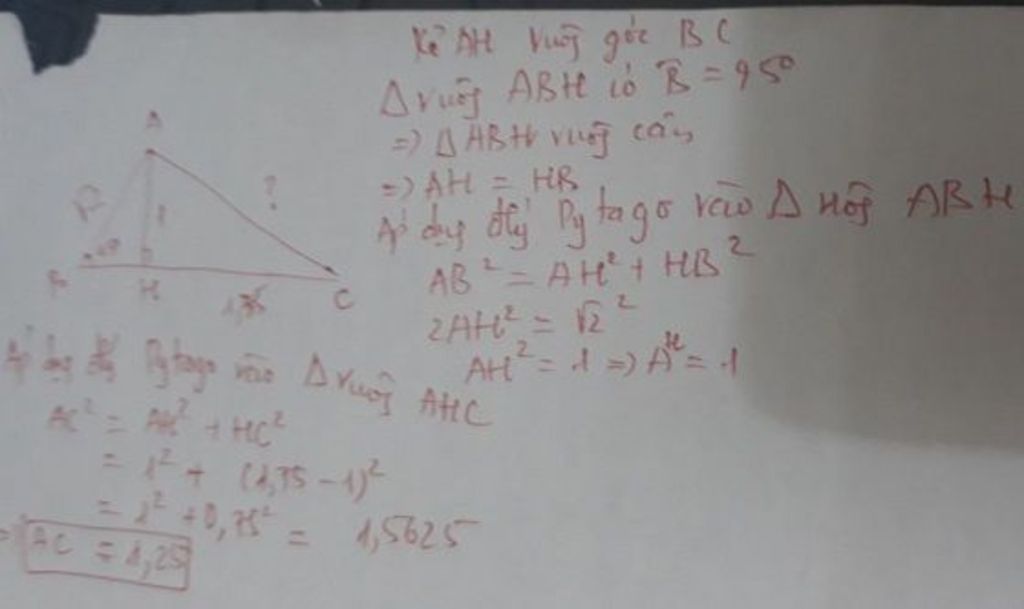 Kẻ AH vuông góc BC
Δ vuông ABH có B̂ = 45°
=> Δ ABH vuông cân
=> AH = HB
Áp dụng đlý Pytago vào Δ vuông ABH
AB² = AH² + HB²
2AH² = √2²
AH² = 1 => AH = 1
A
?
√2
1
B
H
1,75
C
Áp dụng đlý Pytago vào Δ vuông AHC
AC² = AH² + HC²
= 1² + (1,75 - 1)²
= 1² + 0,75² = 1,5625
AC = 1,25